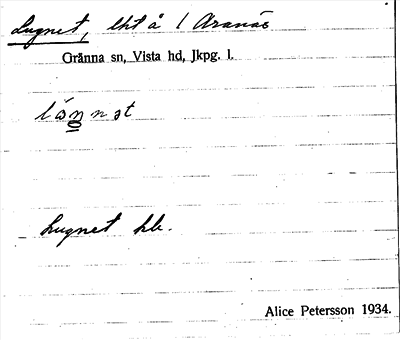 Lugnet, lht å 1 Aranäs
Gränna sn, Vista hd, Jkpg. l.
Lugnet hb.
Alice Petersson 1934.